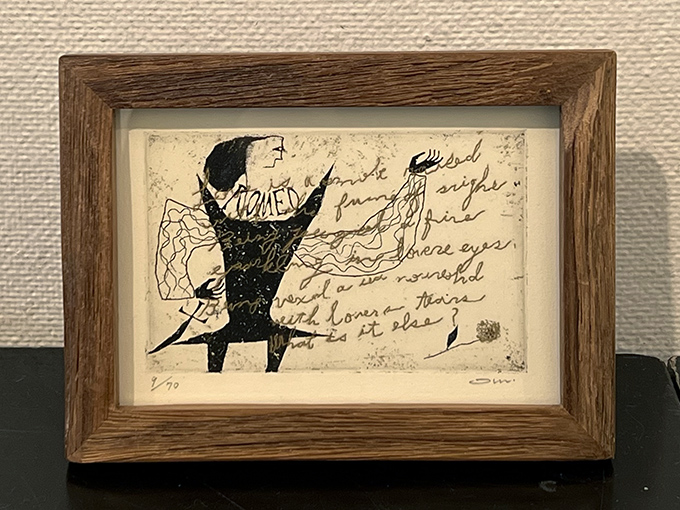 Love is a smoke raised
fume of sighs
ROMEO
Being purged a fire
sparkling in lovers eyes.
Being vexd a sea nourishd
with lovers tears
what is it else?
9/70